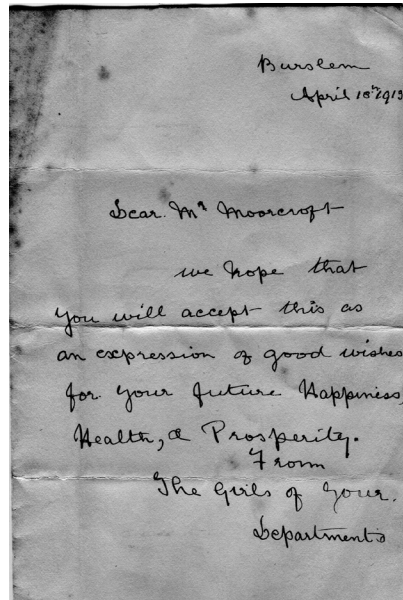 Burslem
April 18th 1913
Dear Mr Moorcroft
we hope that
you will accept this as
an expression of good wishes
for your future Happiness,
Health, & Prosperity.
From
The Girls of Your.
Departments